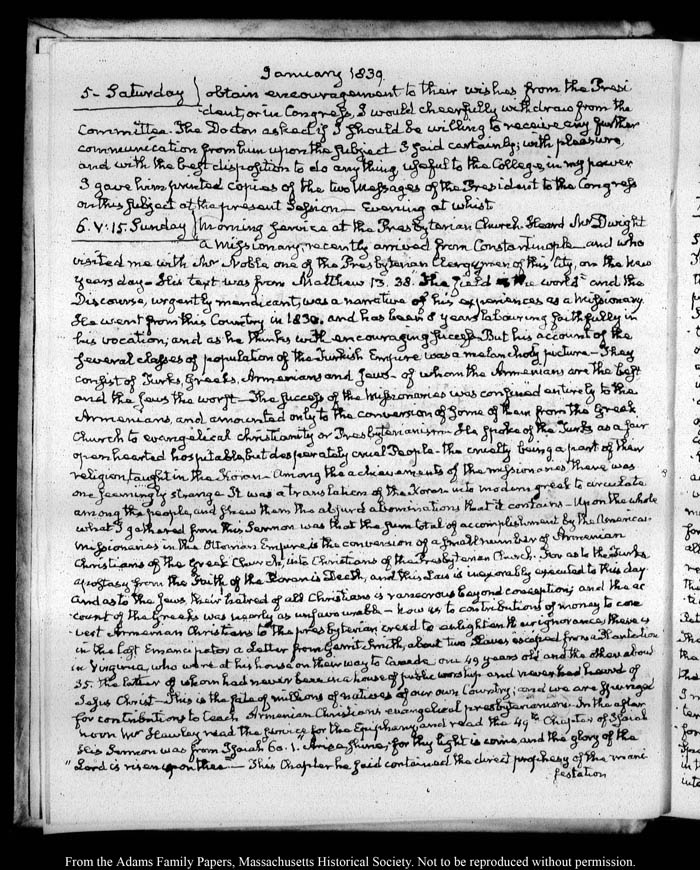 January 1839.
5- Saturday } obtain encouragement to their wishes from the Presi
dent, or in Congress, I would cheerfully withdraw from the
Committee. The Doctor asked if I should be willing to receive any further
communication from him upon the subject. I said certainly; with pleasure,
and with the best disposition to do any thing useful to the College, in my power
I gave him printed copies of the two Messages of the President to the Congress
on this subject at the present Session — Evening at whist
6. V:15. Sunday } Morning service at the Presbyterian Church. Heard Mr Dwight
a Missionary, recently arrived from Constantinople — and who
visited me with Mr Noble one of the Presbyterian Clergymen of this City, on the New
years day — His text was from Matthew 13. 38. "The field is the world" and the
Discourse, urgently mendicant, was a narrative of his experiences as a Missionary
He went from this Country in 1830. and has been 8 years labouring faithfully in
his vocation; and as he thinks with encouraging success. But his account of the
several classes of population of the Turkish Empire was a melancholy picture — They
consist of Turks, Greeks, Armenians and Jews — of whom the Armenians are the best
and the Jews the worst — The success of the Missionaries was confined entirely to the
Armenians, and amounted only to the conversion of some of them from the Greek
Church to evangelical christianity or Presbyterianism — He spoke of the Turks as a fair
open hearted hospitable, but desperately cruel People — the cruelty being a part of their
religion, taught in the Koran. Among the achievements of the missionaries there was
one seemingly strange. It was a translation of the Koran into modern greek to circulate
among the people, and shew them the absurd abominations that it contains — Upon the whole
what I gathered from this Sermon was that the sum total of accomplishment by the American
missionaries in the Ottoman Empire is the conversion of a small number of Armenian
Christians of the Greek Church, into Christians of the Presbyterian Church. For as to the Turks
apostasy from the Faith of the Koran is Death, and this Law is inexorably executed to this day.
And as to the Jews their hatred of all Christians is rancorous beyond conception; and the ac
count of the Greeks was nearly as unfavourable — Now as to contributions of money to con
vert Armenian Christians to the presbyterian creed to enlighten their ignorance, there is
in the last Emancipator a Letter from Gerrit Smith, about two Slaves escaped from a Plantation
in Virginia, who were at his house on their way to Canada, one 49 years old and the other about
35. the latter of whom had never been in a house of public worship and never had heard of
Jesus Christ — This is the fate of millions of natives of our own Country; and we are
for contributions to teach Armenian Christians evangelical presbyterianism. In the after
noon Mr Hawley read the service for the Epiphany and read the 49th Chapter of Isaiah
His Sermon was from Isaiah 60. 1. "Arise, shine; for thy light is come and the glory of the
"Lord is risen upon thee" — This Chapter he said contained the direct prophecy of the mani
festation
From the Adams Family Papers, Massachusetts Historical Society. Not to be reproduced without permission.